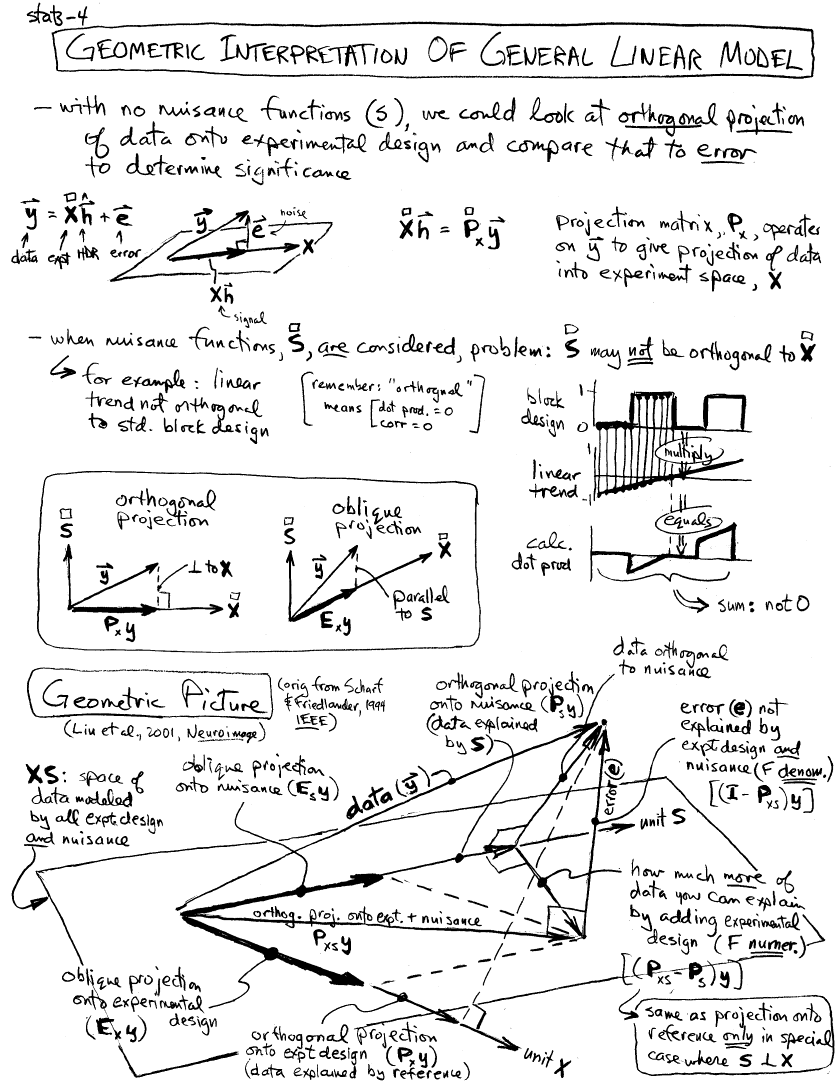 stats-4
GEOMETRIC INTERPRETATION OF GENERAL LINEAR MODEL
– with no nuisance functions (s), we could look at orthogonal projection
of data onto experimental design and compare that to error
to determine significance
y = Xh + e
data expt HDR error
y
e
noise
X
Xh
signal
Xh = Pₓy
Projection matrix, Pₓ, operates
on y to give projection of data
into experiment space, X
– when nuisance functions, S, are considered, problem: S may not be orthogonal to X
for example: linear
trend not orthogonal
to std. block design
[remember: "orthognal"
means [dot prod. = 0
corr = 0
block
design
1
0
multiply
linear
trend
1
-1
equals
calc.
dot prod
sum: not 0
orthogonal
projection
S
y
⊥ to X
X
Pₓy
oblique
projection
S
y
X
parallel
to S
Eₓy
Geometric Picture
(orig from Scharf
& Friedlander, 1994
IEEE)
(Liu et al., 2001, Neuroimage)
data orthogonal
to nuisance
orthogonal projection
onto nuisance (Psy)
(data explained
by S)
error (e) not
explained by
expt design and
nuisance (F denom.)
[(I - Pxs)y]
XS: space of
data modeled
by all expt. design
and nuisance
oblique projection
onto nuisance (Esy)
data (y)
error (e)
unit S
how much more of
data you can explain
by adding experimental
design (F numer.)
[(Pxs - Ps)y]
orthog. proj. onto expt. + nuisance
Pxsy
oblique projection
onto experimental
design
(Eₓy)
orthogonal projection
onto expt design (Pₓy)
(data explained by reference)
unit X
same as projection onto
reference only in special
case where S ⊥ X